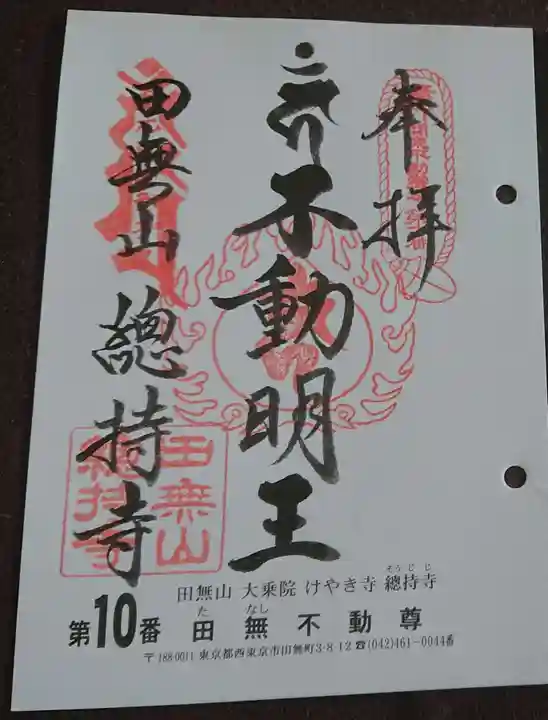 奉拝
不動明王
田無山 總持寺
田無山
總持寺
田無山 大乗院 けやき寺 總持寺
そうじじ
第10番 田無不動尊
た なし
〒188-0011 東京都西東京市田無町3-8-12☎(042)461-0044番